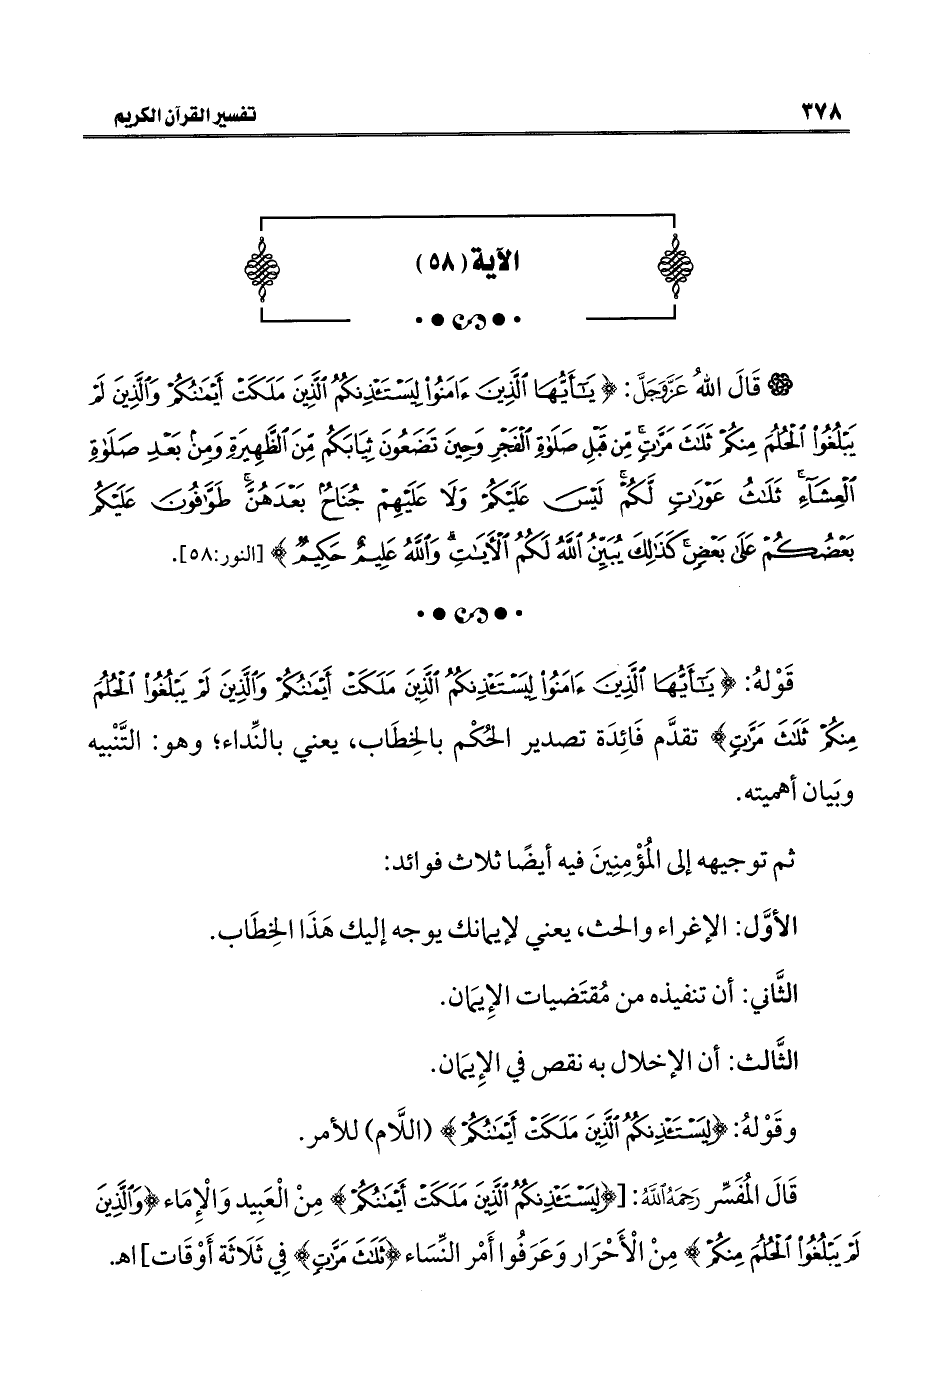 ٣٧٨ تفسير القرآن الكريم
الآية (٥٨)
قَالَ اللهُ عَزَّوَجَلَّ: ﴿ يَٰٓأَيُّهَا ٱلَّذِينَ ءَامَنُوا۟ لِيَسْتَـْٔذِنكُمُ ٱلَّذِينَ مَلَكَتْ أَيْمَٰنُكُمْ وَٱلَّذِينَ لَمْ
يَبْلُغُوا۟ ٱلْحُلُمَ مِنكُمْ ثَلَٰثَ مَرَّٰتٍ ۚ مِّن قَبْلِ صَلَوٰةِ ٱلْفَجْرِ وَحِينَ تَضَعُونَ ثِيَابَكُم مِّنَ ٱلظَّهِيرَةِ وَمِنۢ بَعْدِ صَلَوٰةِ
ٱلْعِشَآءِ ۚ ثَلَٰثُ عَوْرَٰتٍ لَّكُمْ ۚ لَيْسَ عَلَيْكُمْ وَلَا عَلَيْهِمْ جُنَاحٌۢ بَعْدَهُنَّ ۚ طَوَّٰفُونَ عَلَيْكُم
بَعْضُكُمْ عَلَىٰ بَعْضٍ ۚ كَذَٰلِكَ يُبَيِّنُ ٱللَّهُ لَكُمُ ٱلْءَايَٰتِ ۗ وَٱللَّهُ عَلِيمٌ حَكِيمٌ ﴾ [النور:٥٨].
قَوْلهُ: ﴿ يَٰٓأَيُّهَا ٱلَّذِينَ ءَامَنُوا۟ لِيَسْتَـْٔذِنكُمُ ٱلَّذِينَ مَلَكَتْ أَيْمَٰنُكُمْ وَٱلَّذِينَ لَمْ يَبْلُغُوا۟ ٱلْحُلُمَ
مِنكُمْ ثَلَٰثَ مَرَّٰتٍ﴾ تقدَّم فَائِدَة تصدير الحُكْم بالخِطَاب، يعني بالنِّداء؛ وهو: التَّنْبيه
وبَيان أهميته.
ثم توجيهه إلى المُؤْمِنِينَ فيه أيضًا ثلاث فوائد:
الأوَّل: الإغراء والحث، يعني لإيمانك يوجه إليك هَذَا الخِطَاب.
الثَّاني: أن تنفيذه من مُقتَضيات الإِيمَان.
الثَّالث: أن الإخلال به نقص في الإِيمَان.
وقَوْلهُ: ﴿لِيَسْتَـْٔذِنكُمُ ٱلَّذِينَ مَلَكَتْ أَيْمَٰنُكُمْ﴾ (اللَّام) للأمر.
قَالَ المُفَسِّر رَحِمَهُ اللَّهُ: [﴿لِيَسْتَـْٔذِنكُمُ ٱلَّذِينَ مَلَكَتْ أَيْمَٰنُكُمْ﴾ مِنْ الْعَبِيد وَالْإِمَاء ﴿وَٱلَّذِينَ
لَمْ يَبْلُغُوا۟ ٱلْحُلُمَ مِنكُمْ ﴾ مِنْ الْأَحْرَار وَعَرَفُوا أَمْر النِّسَاء ﴿ثَلَٰثَ مَرَّٰتٍ﴾ فِي ثَلَاثَة أَوْقَات] اهـ.